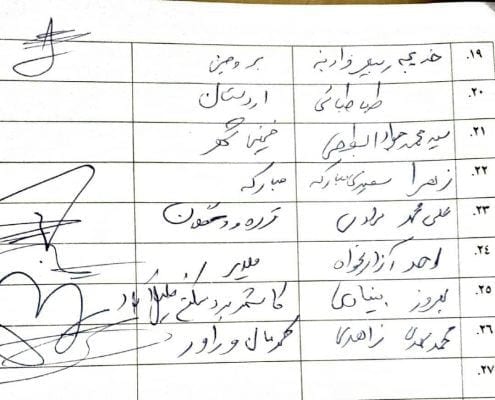 .۱۹ خدیجه ربیعی فرادنبه بروجن
.۲۰ طباطبائی اردستان
.۲۱ سید محمد جواد ابطحی خمینی شهر
.۲۲ زهرا سعیدی مبارکه مبارکه
.۲۳ علی محمد مرادی قروه و دهگلان
.۲۴ احد آزادیخواه ملایر
.۲۵ بهروز بنیادی کاشمر بردسکن خلیل آباد
.۲۶ محمد مهدی زاهدی کرمان و راور
.۲۷